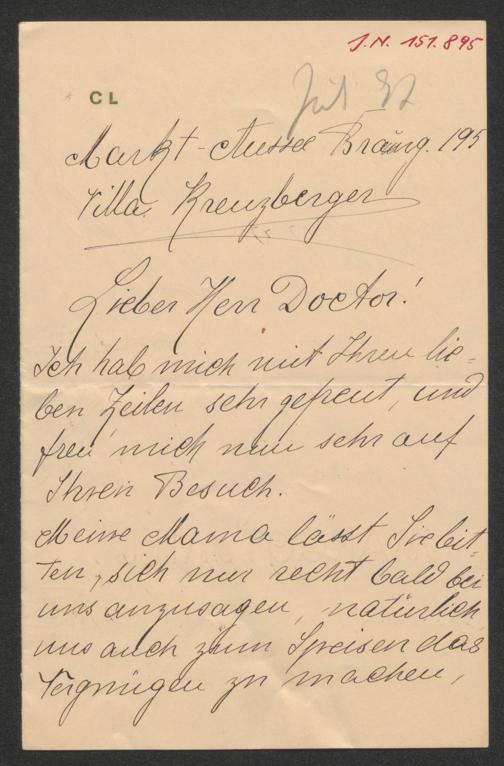 J.N. 151.895
CL
Markt-Aussee Bräug. 195
Villa Kreuzberger
Lieber Herr Doctor!
Ich hab mich mit Ihren lie-
ben Zeilen sehr gefreut, und
freu' mich nun sehr auf
Ihren Besuch.
Meine Mama lässt Sie bit-
ten, sich nur recht bald bei
uns anzusagen, natürlich
uns auch zum Speisen das
Vergnügen zu machen,